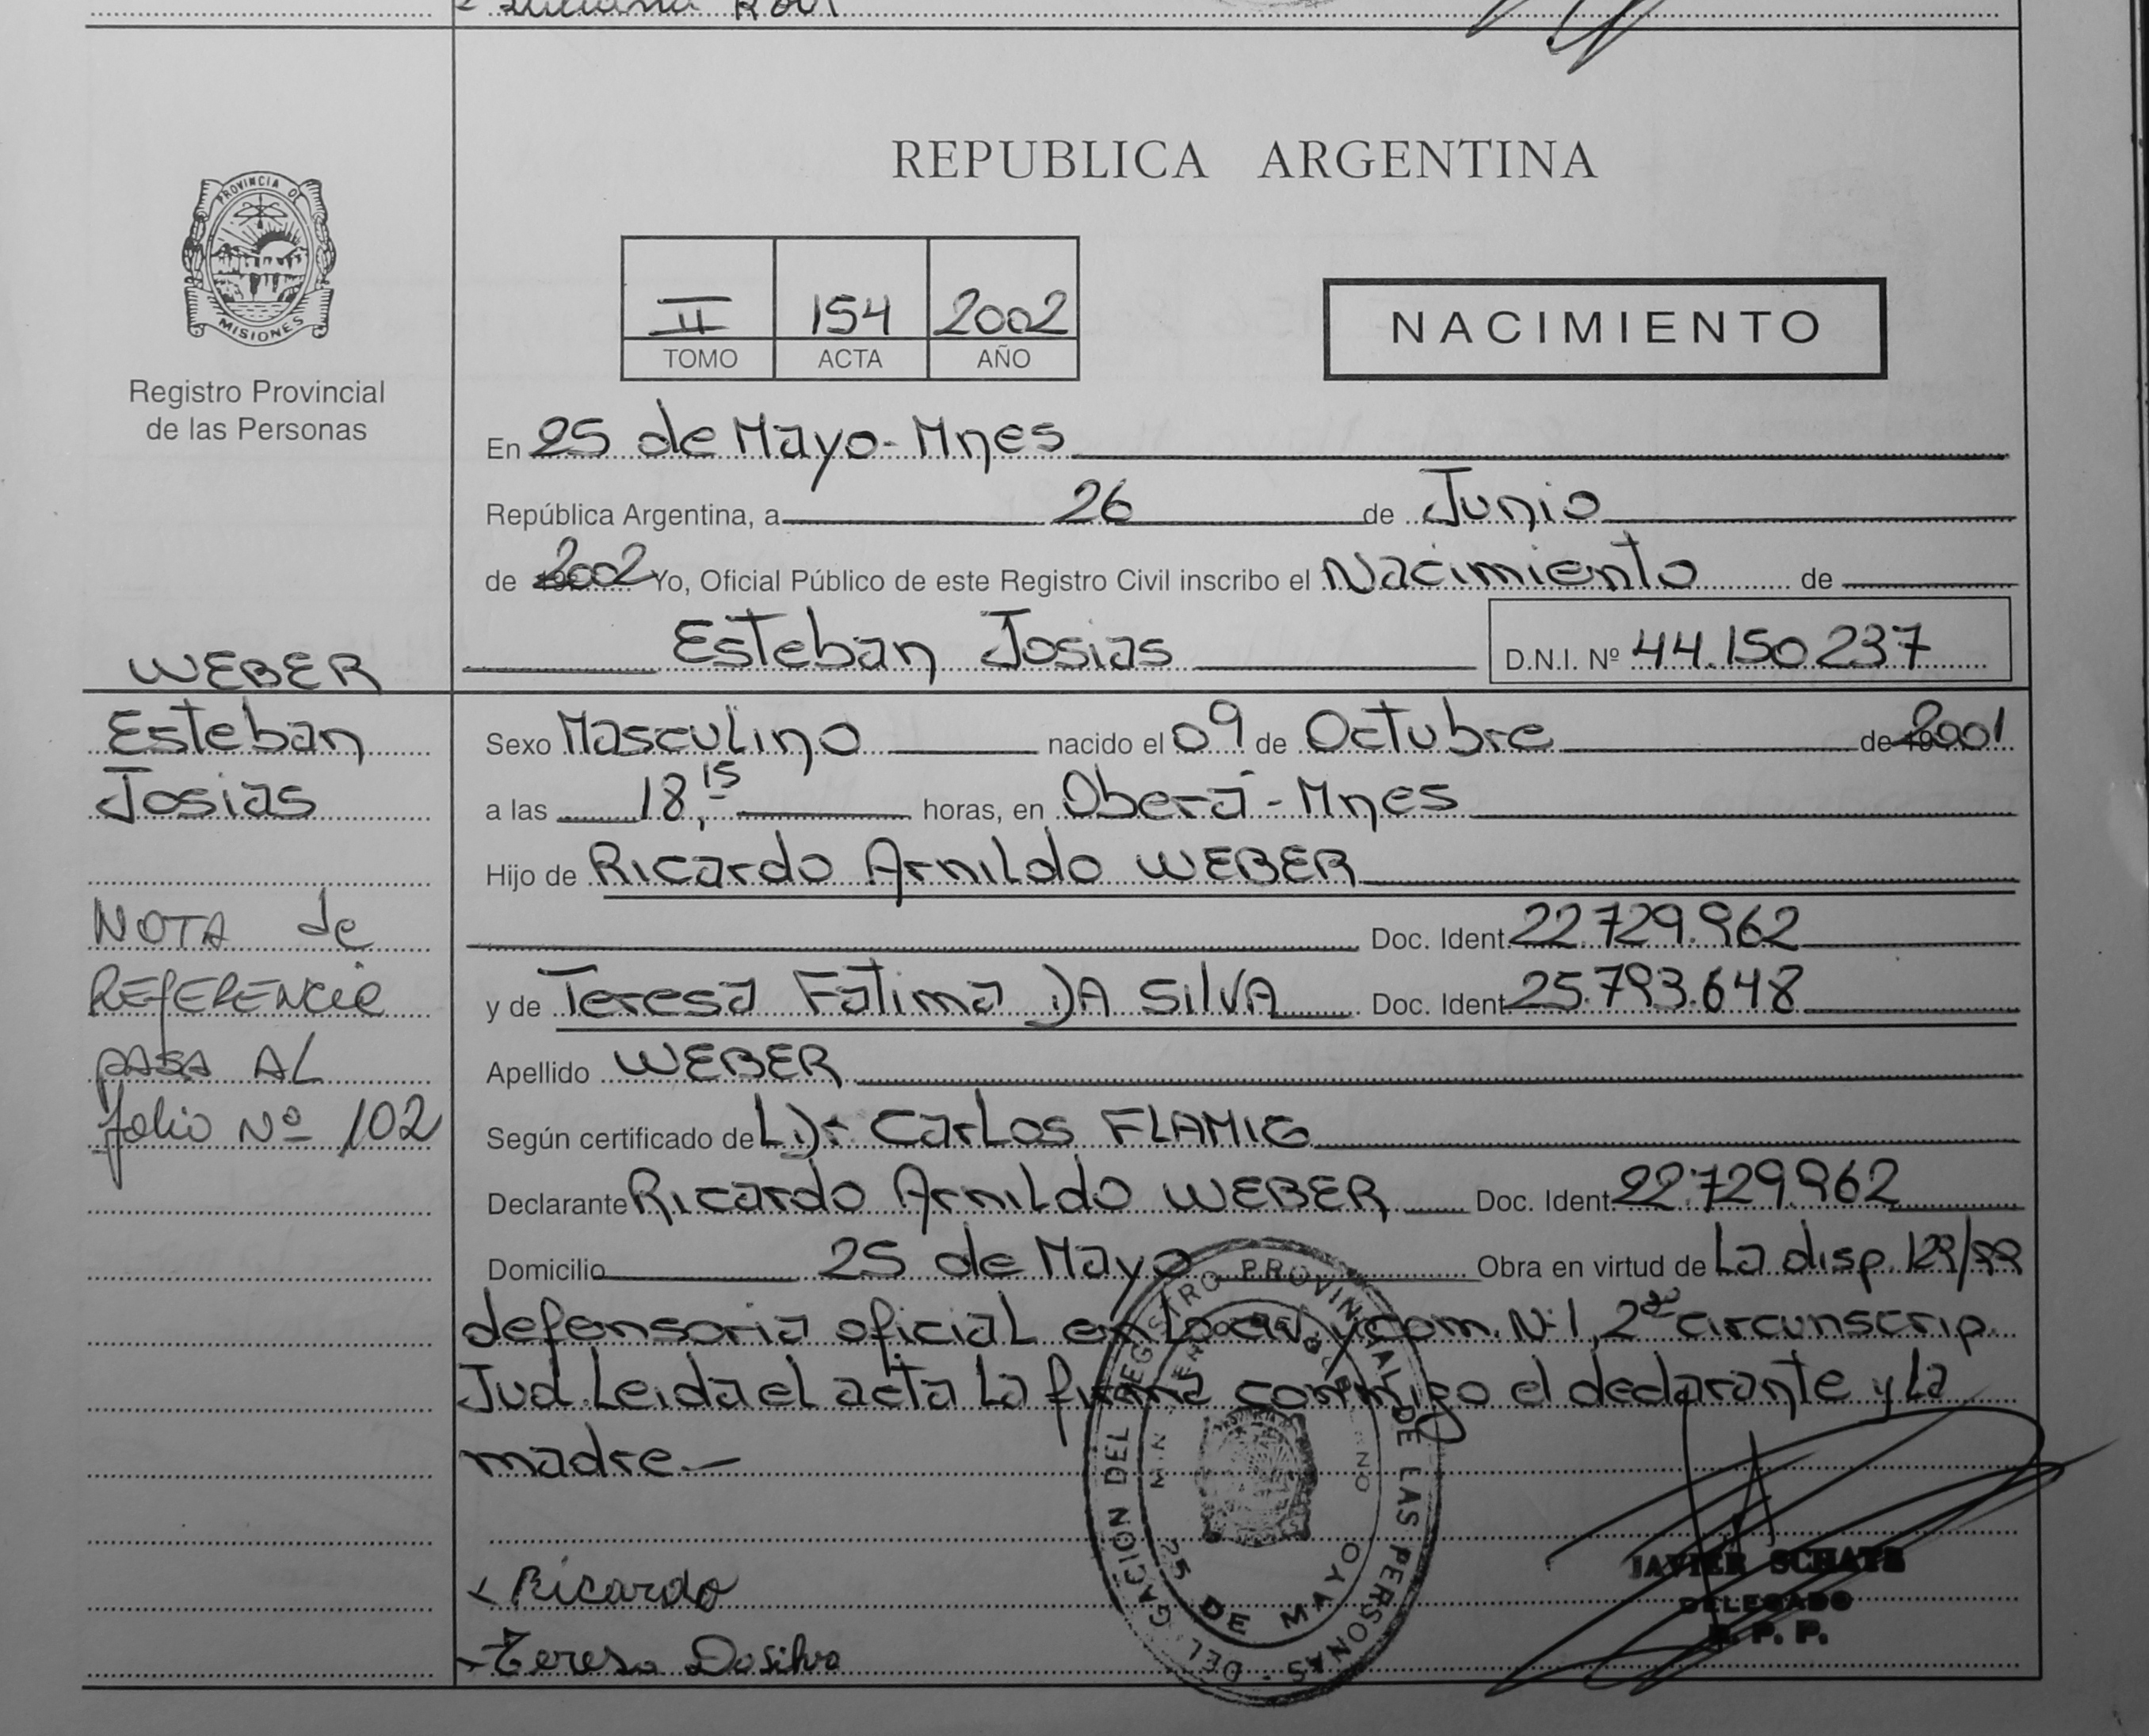 Luciana
REPUBLICA ARGENTINA
PROVINCIA DE
MISIONES
Registro Provincial
de las Personas
II 154 2002
TOMO ACTA AÑO
NACIMIENTO
En 25 de Mayo - Mnes
República Argentina, a 26 de Junio
de 2002 Yo, Oficial Público de este Registro Civil inscribo el Nacimiento de
Esteban Josias D.N.I. Nº 44.150237
WEBER
Esteban
Josias
NOTA de
REFERENCIA
PASA AL
folio Nº 102
Sexo Masculino nacido el 09 de Octubre de 2001
a las 18,15 horas, en Oberá - Mnes
Hijo de Ricardo Arnildo WEBER
Doc. Ident. 22.729.962
y de Teresa Fatima DA SILVA Doc. Ident 25.793.648
Apellido WEBER
Según certificado del Dr. Carlos FLAMIG
Declarante Ricardo Arnildo WEBER Doc. Ident. 22.729.962
Domicilio 25 de Mayo Obra en virtud de La disp. 129/99
defensoria oficial en Lo civil y com. Nº 1, 2da circunscrip.
Jud. Leida el acta La firma conmigo el declarante y La
madre.-
DELEGACION DEL REGISTRO PROVINCIAL DE LAS PERSONAS
25 DE MAYO
Ricardo
Teresa Dasilva
JAVIER SCHATZ
DELEGADO
R. P. P.